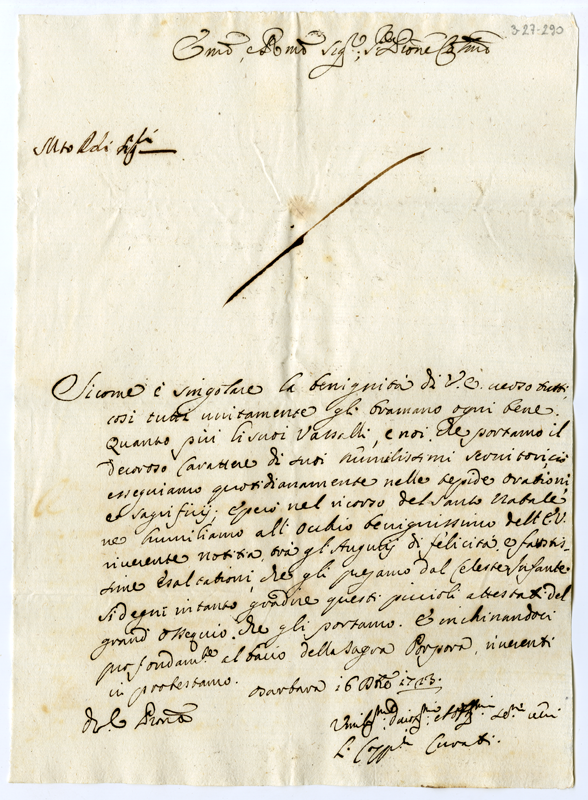 3-27-290
Emo, e Rmo Sigr, Sigr Pne Colmo
Sicome è singolare la benignità di V.E. verso tutti,
così tutti unitamente gli bramano ogni bene.
Quanto più li suoi Vassalli, e noi, che portamo il
decoroso Carattere di suoi humilissimi servitori, ciò
esseguiamo quotidianamente nelle tepide orationi
e sagrifizij: e però nel ricorso del Santo Natale
ne humiliamo all' Occhio benignissimo dell' E.V.
riverente notitia, trà gl' Augurij di felicità, e faustis-
sime esaltationi, che gli pregamo dal Celeste Infante
Si degni intanto gradire questi piccioli attestati del
grand' ossequio, che gli portamo. E inchinandoci
profondamte al bacio della Sagra Porpora, riverenti
ci protestamo. Barbara 16 Xbre
di V.E. Pron
Curati.